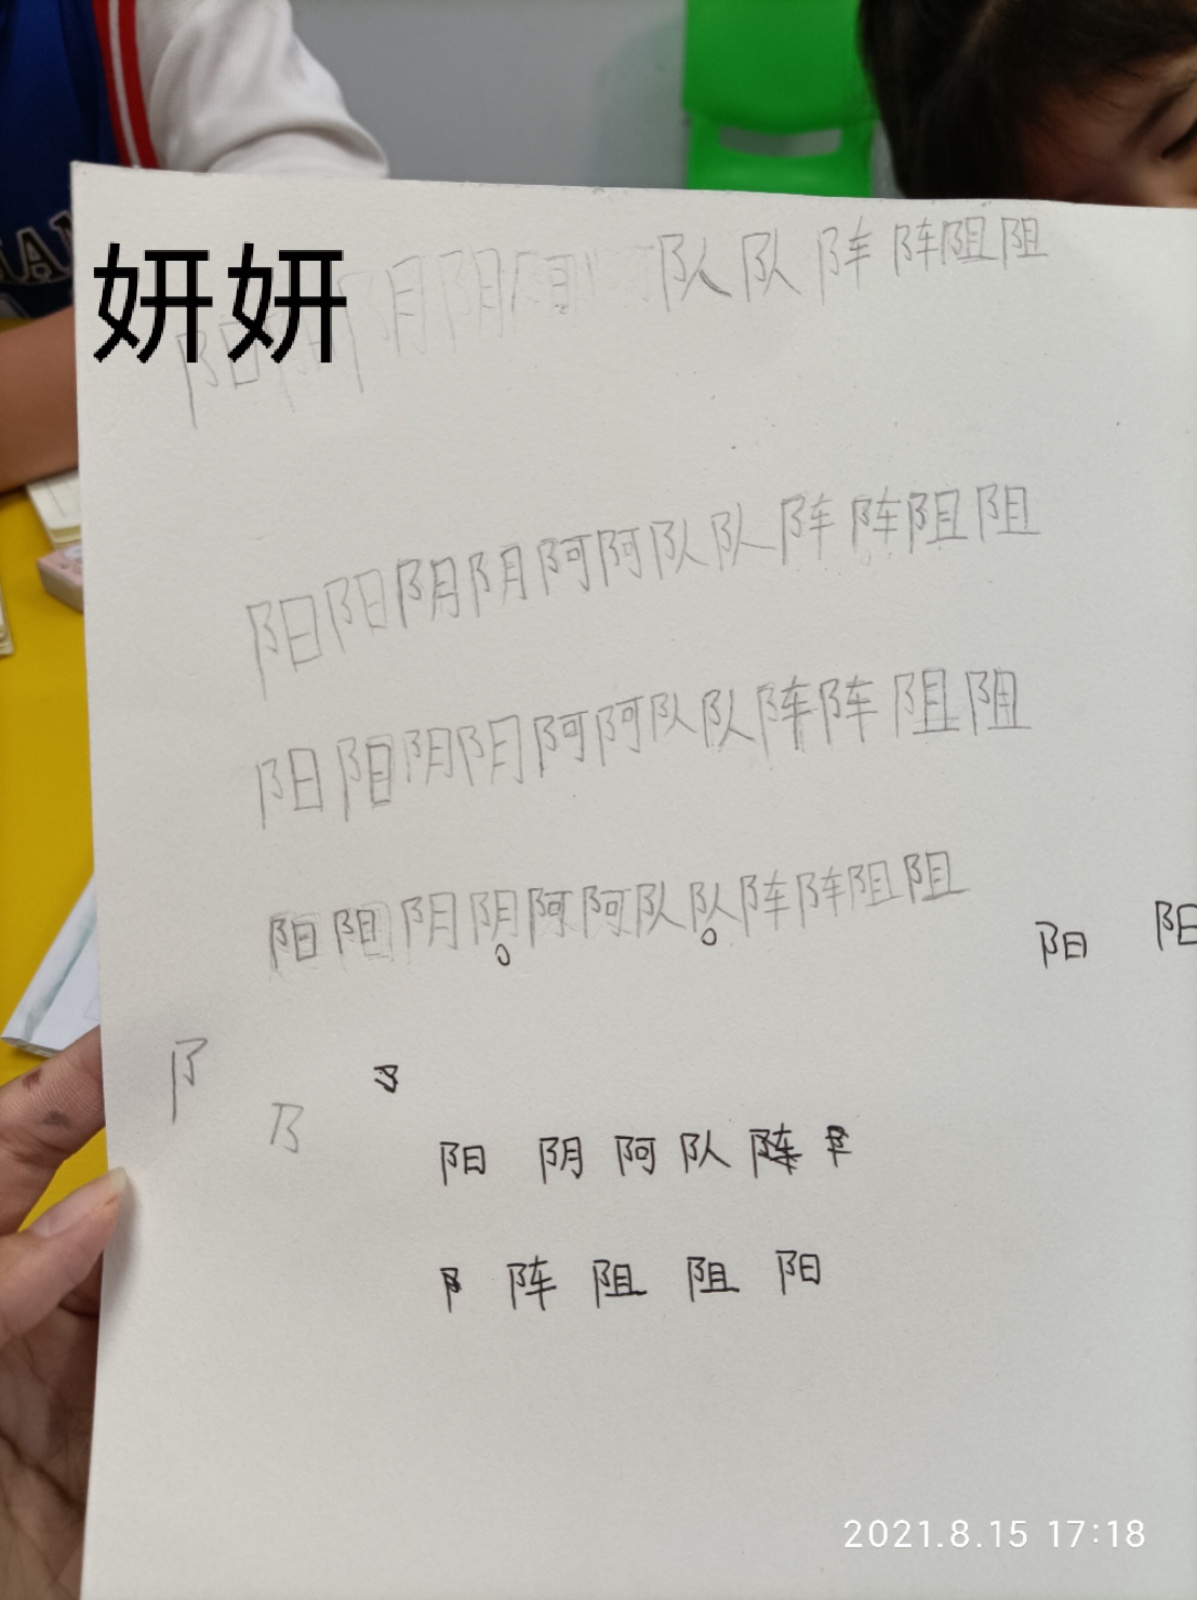 妍妍
阳 阴 阴 队 队 阵 阵 阻 阻
阳 阳 阴 阴 阿 阿 队 队 阵 阵 阻 阻
阳 阳 阴 阴 阿 阿 队 队 阵 阵 阻 阻
阳 阳 阴 阴 阿 阿 队 队 阵 阵 阻 阻
阳 阳
阝
阳 阴 阿 队 阵
阵 阻 阻 阳
2021.8.15 17:18